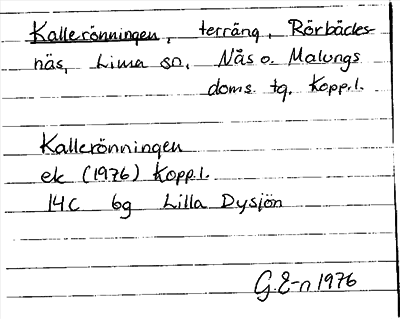 Kallerönningen, terräng, Rörbäcks-
näs, Lima sn, Nås o. Malungs
doms. tg. Kopp.l.
Kallerönningen
ek (1976) Kopp.l.
14C 6g Lilla Dysjön
G.E-n 1976